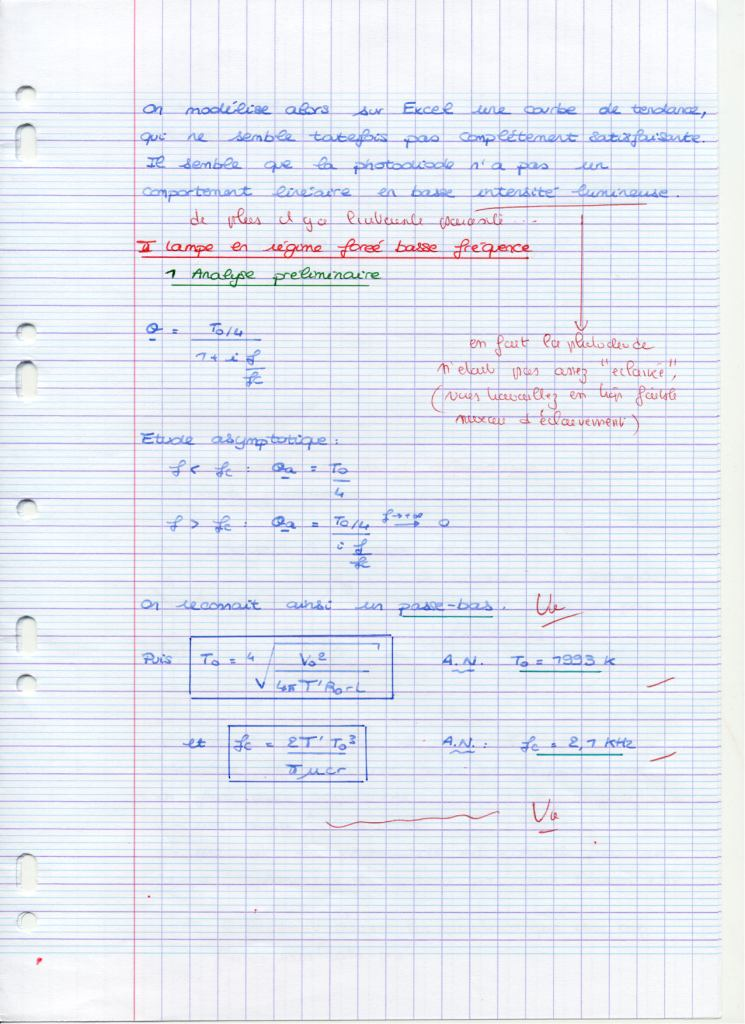 On modélise alors sur Excel une courbe de tendance,
qui ne semble toutefois pas complétement satisfaisante.
Il semble que la photodiode n'a pas un
comportement linéaire en basse intensité lumineuse.
de plus il y a l'influence ...
II Lampe en régime forcé basse fréquence
1 Analyse préliminaire
θ = T₀/4 / (1 + i f/fc)
en fait la photodiode
n'était pas assez "éclairée",
(vous travaillez en très faible
niveau d'éclairement)
Etude asymptotique :
f < fc : θa = T₀/4
f > fc : θa = T₀/4 / (i f/fc) f→+∞ → 0
On reconnait ainsi un passe-bas. Vu
Puis T₀ = ⁴√(V₀² / 4π T' R₀ r L) A.N. T₀ = 1993 K
et fc = 2T' T₀³ / π μcr A.N. : fc = 2,1 KHz
Vu